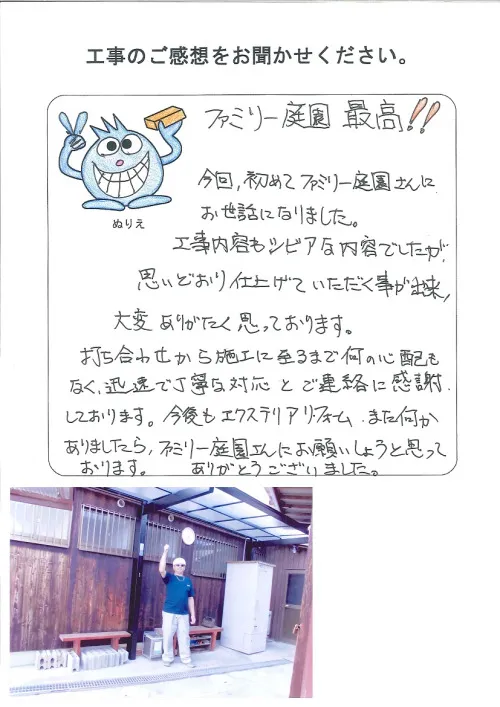 工事のご感想をお聞かせください。
ファミリー庭園 最高!!
ぬりえ
今回,初めてファミリー庭園さんに
お世話になりました。
工事内容もシビアな内容でしたが,
思いどおり仕上げていただく事が出来,
大変ありがたく思っております。
打ち合わせから施工に至るまで何の心配も
なく,迅速で丁寧な対応とご連絡に感謝
しております。今後もエクステリアリフォーム また何か
ありましたら,ファミリー庭園さんにお願いしようと思って
おります。 ありがとうございました。